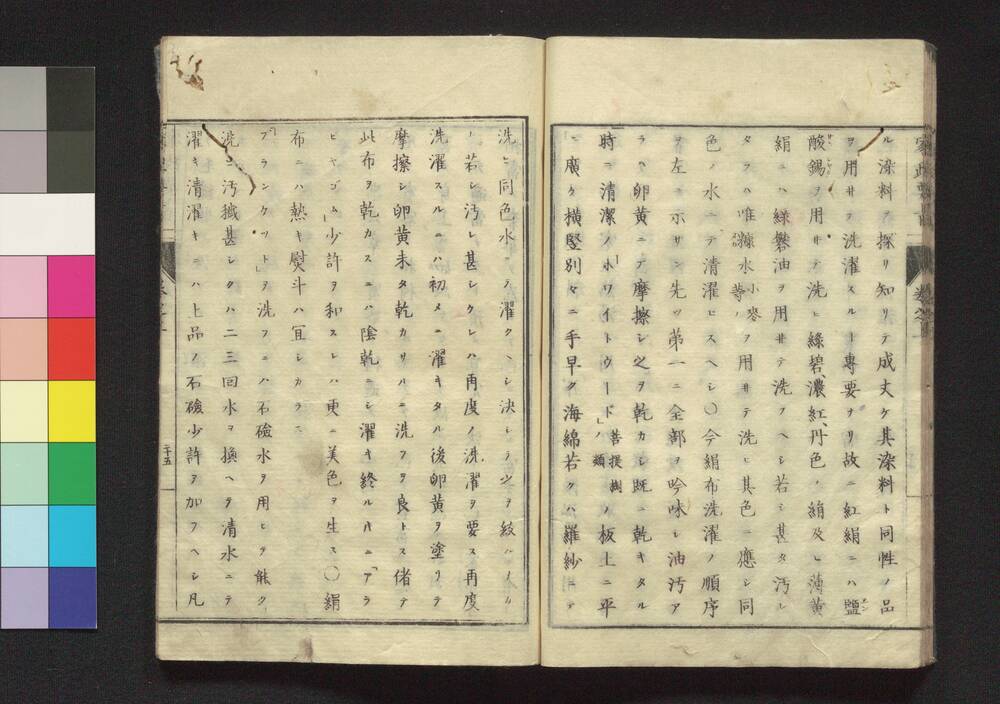 ル染料ヲ探リ知リテ成丈ケ其染料ト同性ノ品
ヲ用井テ洗濯スルヿ專要ナリ故ニ紅絹ニハ鹽
酸錫ヲ用井テ洗ヒ綠碧、濃紅、丹色ノ絹及ヒ薄黄
絹ニハ綠礬油ヲ用井テ洗フヘシ若シ甚タ汚レ
タラハ唯糠水小麥等ヲ用井テ洗ヒ其色ニ應シ同
色ノ水ニテ清濯ヒスヘシ〇今絹布洗濯ノ順序
ヲ左ニ示サン先ツ第一ニ全部ヲ吟味シ油汚ア
ラハ卵黄ニテ摩擦シ之ヲ乾カシ既ニ乾キタル
時ニ清潔ノホワイトウード」菩提樹ノ類ノ板上ニ平
ニ廣ケ横竪別々ニ手早ク海綿若クハ羅紗ニテ
洗ヒ同色水ニテ濯クヘシ決シテ之ヲ絞ル
若シ汚レ甚シクレハ再度ノ洗濯ヲ要ス再度
洗濯スルニハ初メニ濯キタル後卵黄ヲ塗リテ
摩擦シ卵黄未タ乾カサルニ洗フヲ良トス偖テ
此布ヲ乾カスニハ陰乾ニシ濯キ終ル片ニ「アラ
ビヤゴム」少許ヲ和スレハ更ニ美色ヲ生ス〇絹
布ニハ熱キ熨斗ハ宜シカラス
「ブランケット」ヲ洗フニハ石鹼水ヲ用ヒテ能ク
洗ヒ汚穢甚シクハ二三回水ヲ換ヘテ清水ニテ
濯キ清濯キニハ上品ノ石鹼少許ヲ加フヘシ凡
二十五